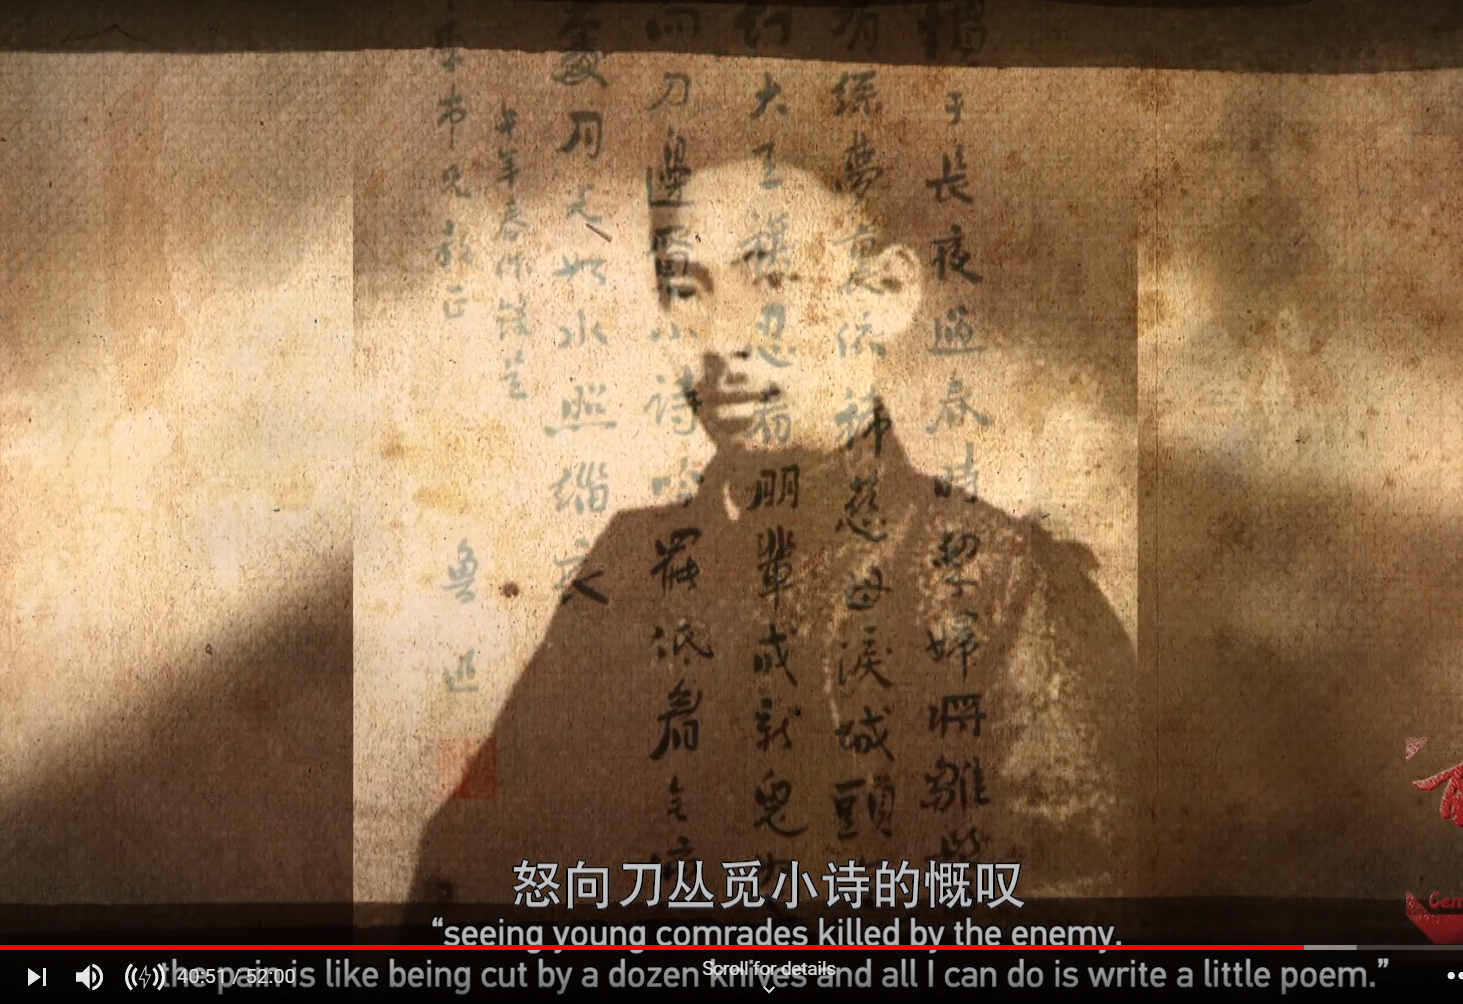 慣于長夜過春時挈婦將雛鬢
有絲夢裏依稀慈母淚城頭
幻大王旗忍看朋輩成新鬼
向刀邊覓小詩吟罷低眉
處月光如水照緇衣
午年春作錄呈
季市兄教正 魯迅
怒向刀丛觅小诗的慨叹
“seeing young comrades killed by the enemy,
the pain is like being cut by a dozen knives and all I can do is write a little poem.”
40:51 / 52:00
Scroll for details